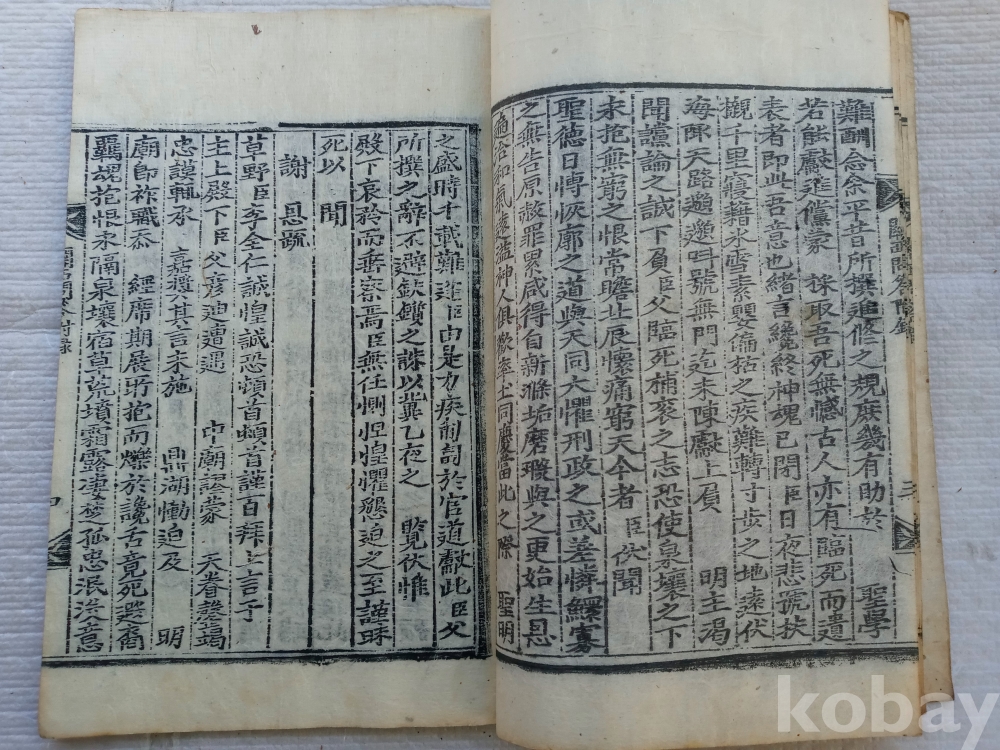 難酬念余平昔所撰進修之規庶幾有助於 聖學
若能獻進儻蒙 採取吾死無憾古人亦有臨死而遺
表者即此吾意也緒言纔終神魂已閉臣日夜悲號扶
櫬千里寢藉氷雪素嬰偏枯之疾難轉寸步之地遠伏
海陬天路邈邈呌號無門迄未陳獻上負 明主渴
聞讜論之誠下負臣父臨死補袞之志恐使泉壤之下
未抱無窮之恨常瞻北辰懷痛窮天今者 臣伏聞
聖德日慱恢廓之道與天同大懼刑政之或差憐鰥寡
之無告原赦罪累咸得自新滌垢磨瑕與之更始生息
和氣 神人俱歡率土同慶當此之際 聖明
之盛時千載難逢臣由是力疾匍匐於官道獻此臣父
所撰之辭不避鈇鑕之誅以冀乙夜之 覽伏惟
殿下哀矜而垂察焉臣無任惻怛惶懼懇迫之至謹昧
死以 聞
謝 恩疏
草野臣李全仁誠惶誠恐頓首頓首謹百拜上言于
主上殿下臣父彦迪遭遇 中廟謬蒙 天眷謹竭
忠謨輒承 嘉奬其言未施 鼎湖慟迫及 明
廟即祚職忝 經席期展所抱而爍於讒舌竟死遐裔
羈魂抱恨永隔泉壤宿草荒墳霜露凄楚孤忠泯沒意